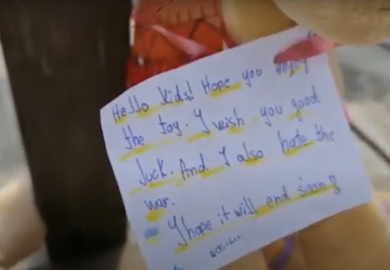 Hello kids! Hope you enjoy
the toy. I wish you good
luck. And I also hate the
war.
I hope it will end soon